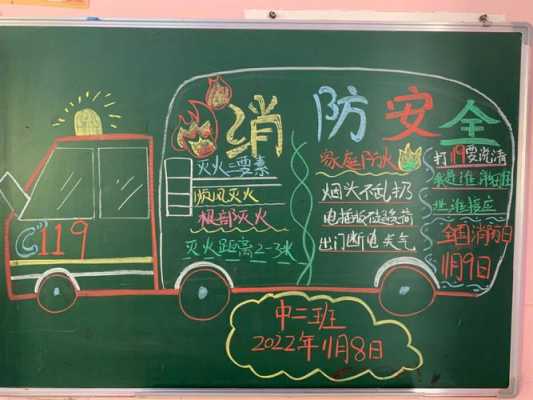 消防安全
119
灭火三要素
顺风灭火
根部灭火
灭火距离2-3米
家庭防火
烟头不乱扔
电插板不超负荷
出门断电关气
打119要说清
全国消防日
11月9日
中二班
2022年11月8日